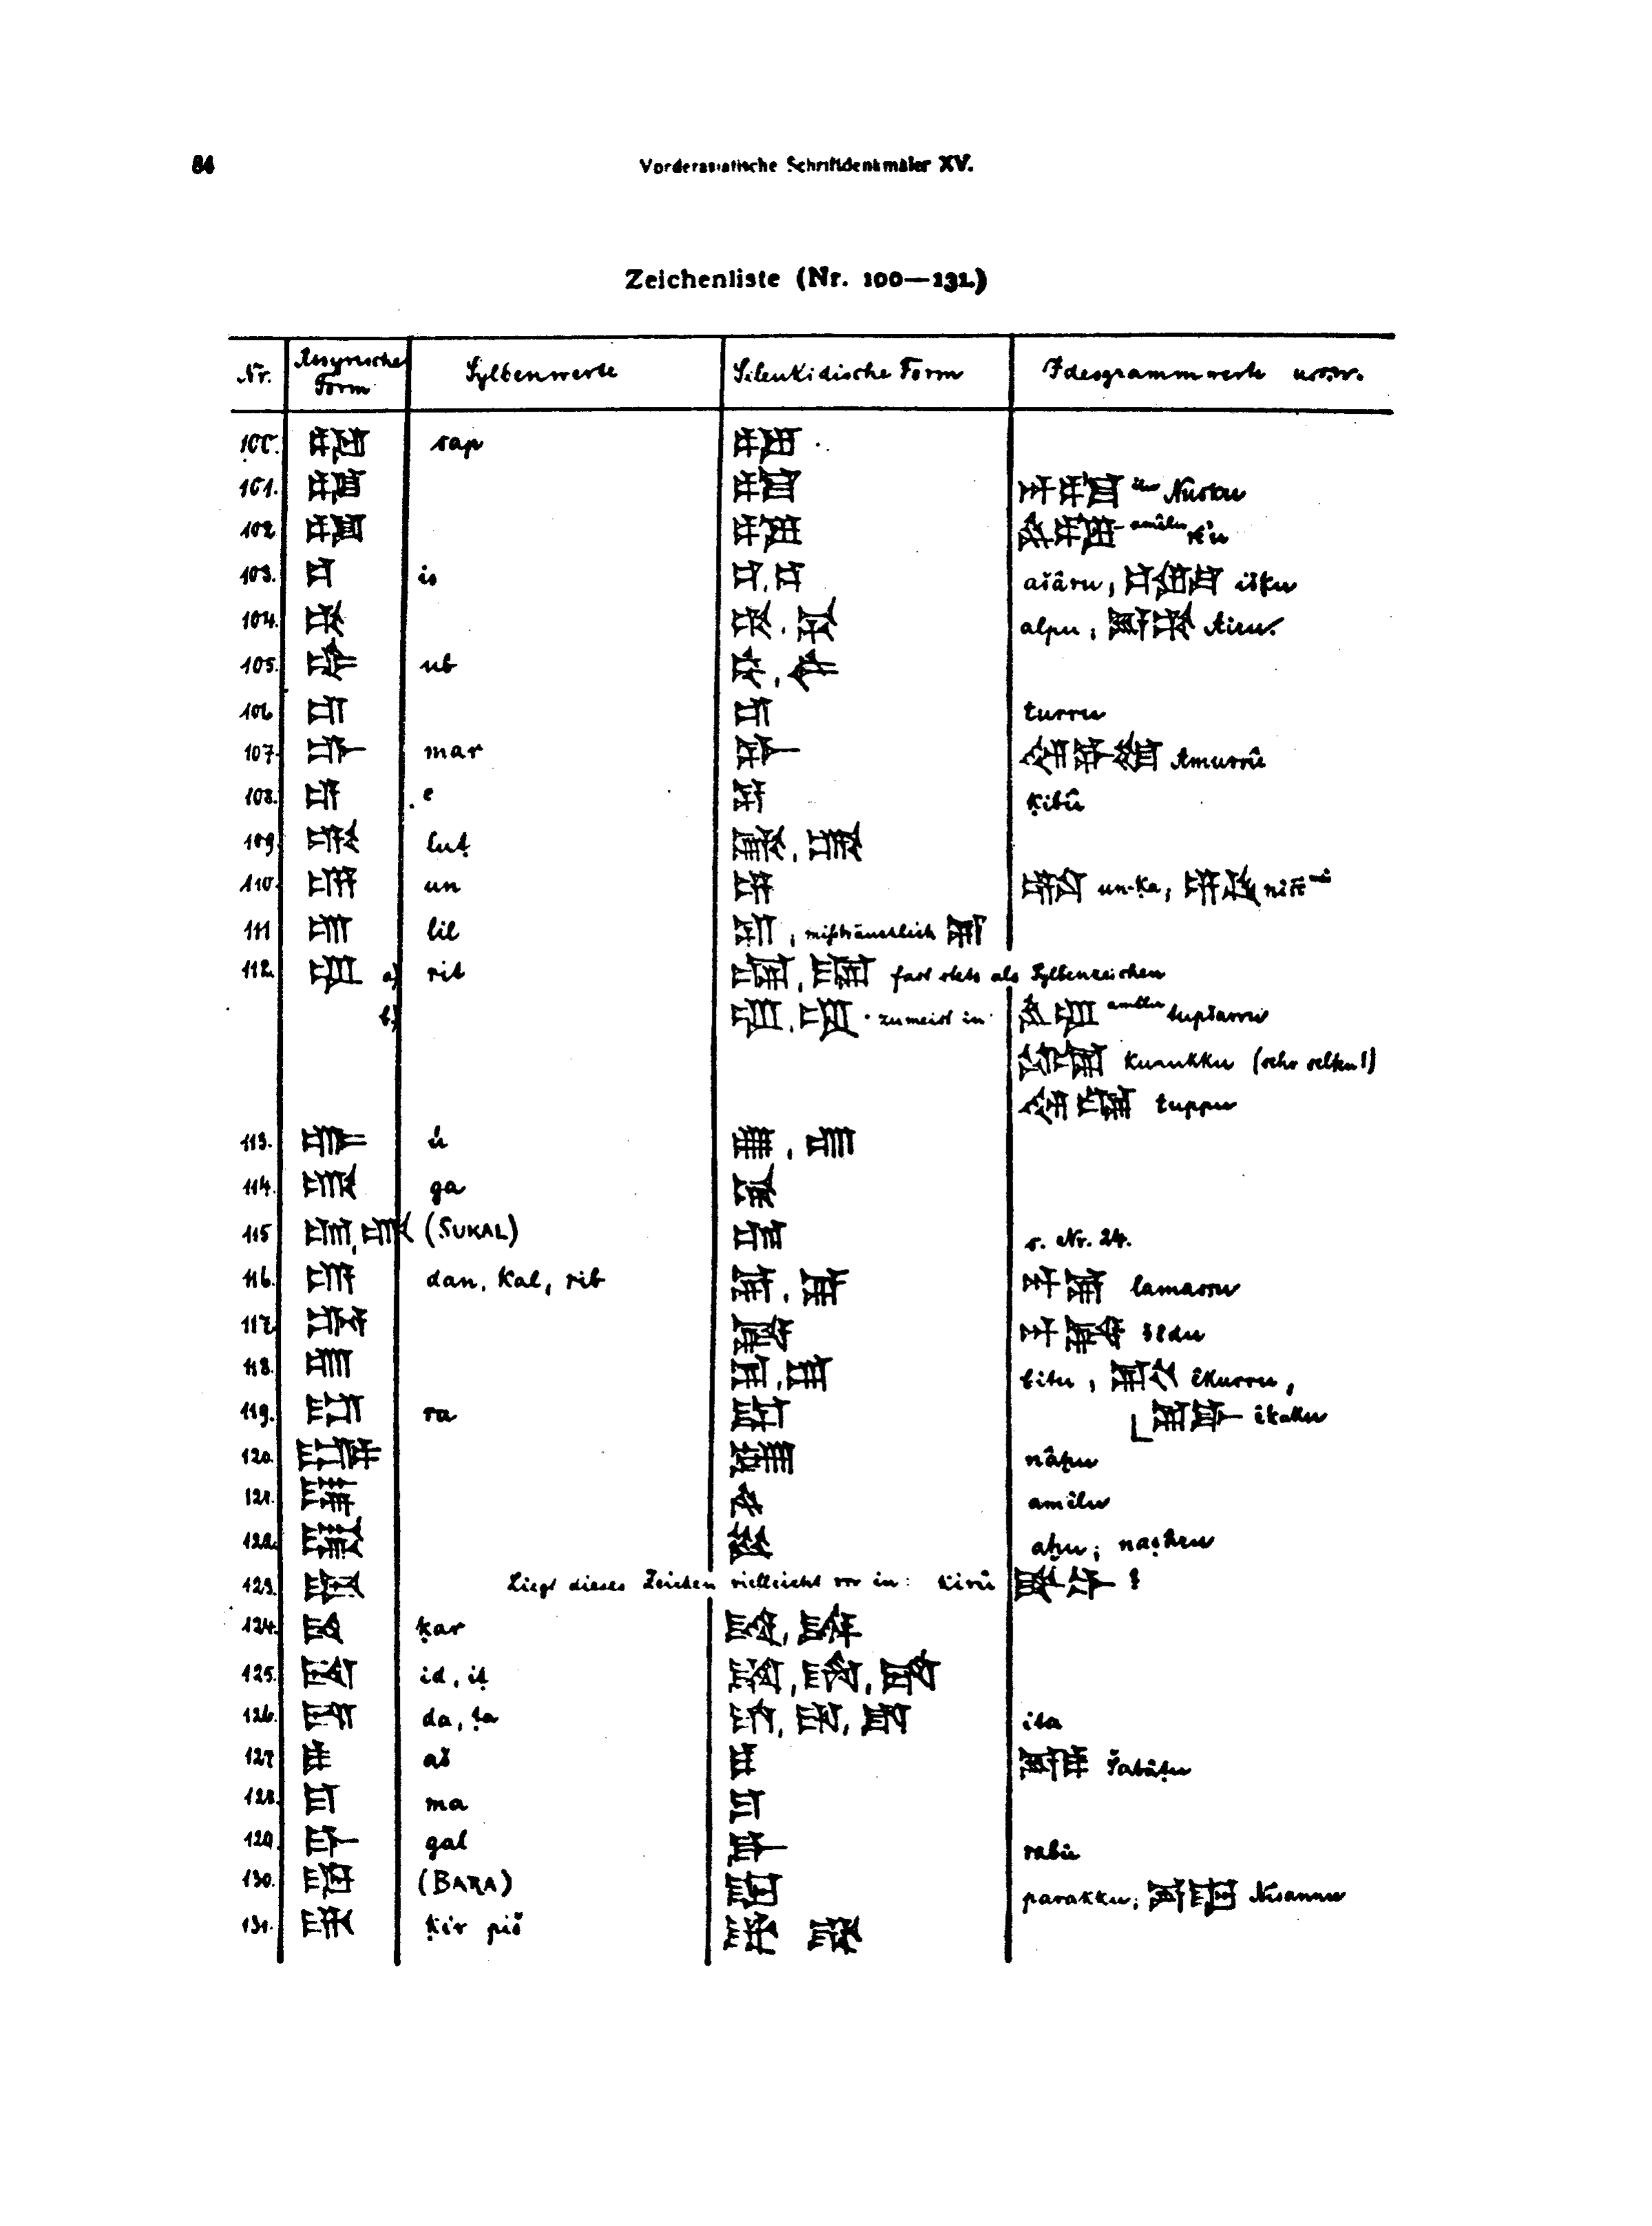 84
Vorderasiatische Schriftdenkmäler XV.
Zeichenliste (Nr. 100—131.)
Nr. Assyrische Form Sylbenwerte Seleukidische Form Ideogrammwerte usw.
100. sap
101. ilu Nusku
102 amêlu rē'u
103. is ašâru, išḳu
104. alpu,
105. ub
106 turru
107. mar Amurrû
108. e ḳibû
109 luṭ
110. un un-ḳa, nišē
111 lil , mißbräuchlich
112. a) rit fast stets als Sylbenzeichen
b) zumeist in amêlu tupšarru
kunukku (sehr selten!)
tuppu
113. ú
114. ga
115 (SUKAL) s. Nr. 24.
116. dan, kal, rib lamassu
117. šēdu
118. bitu, êkurru,
119. ra êkallu
120.
121. amêlu
122. aḫu;
123. Liegt dieses Zeichen vielleicht vor in: kirû ?
124. ḳar
125. id, iṭ
126. da, ṭa ita
127 aš Šabâṭu
128. ma
129. gal rabû
130. (BARA) parakku; Nisannu
131. ḳir piš